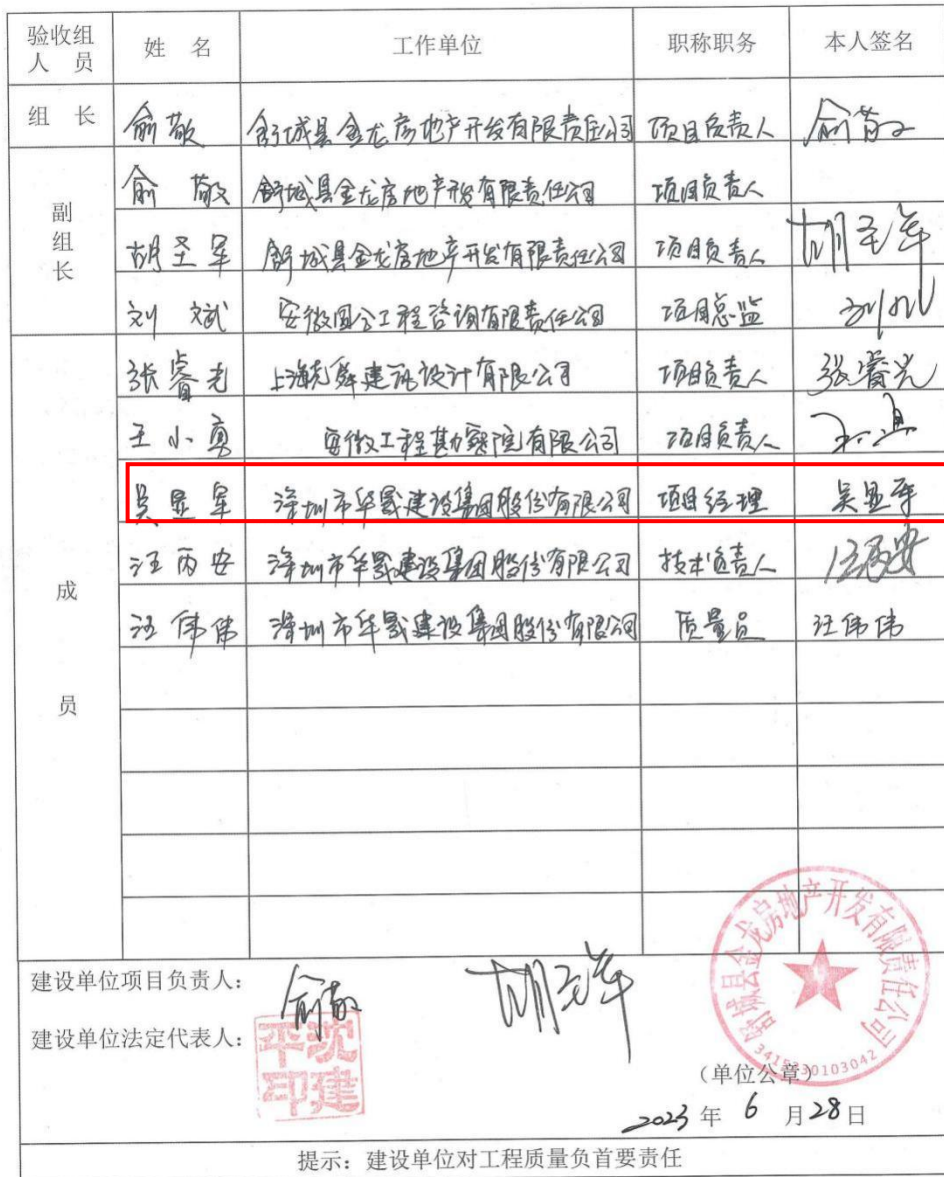 验收组人员 姓 名 工作单位 职称职务 本人签名
组 长 俞敬 舒城县金龙房地产开发有限责任公司 项目负责人 俞敬
副组长 俞 敬 舒城县金龙房地产开发有限责任公司 项目负责人
胡圣军 舒城县金龙房地产开发有限责任公司 项目负责人 胡圣军
刘 斌 安徽国合工程咨询有限责任公司 项目总监 刘斌
成员 张睿光 上海尧舜建筑设计有限公司 项目负责人 张睿光
王小勇 安徽工程勘察院有限公司 项目负责人
吴显军 深圳市华晟建设集团股份有限公司 项目经理 吴显军
汪丙安 深圳市华晟建设集团股份有限公司 技术负责人 汪丙安
汪伟伟 深圳市华晟建设集团股份有限公司 质量员 汪伟伟
建设单位项目负责人: 俞敬 胡圣军
建设单位法定代表人: 沈建平印
舒城县金龙房地产开发有限责任公司
3415230103042
(单位公章)
2023 年 6 月 28 日
提示: 建设单位对工程质量负首要责任